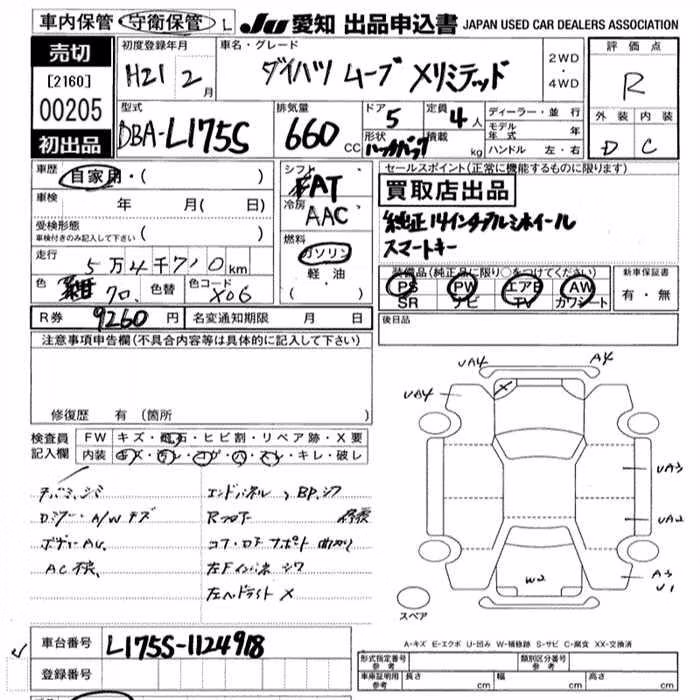 車内保管 守衛保管 L JU 愛知 出品申込書 JAPAN USED CAR DEALERS ASSOCIATION
売切
[2160]
00205
初出品
初度登録年月
H21 2月
車名・グレード
ダイハツ ムーブ Xリミテッド
2WD
・
4WD
評価点
R
外装 内装
D C
型式
DBA-L175S
排気量
660 CC
ドア
5
定員
4人
形状
ハッチバック
積載
kg
ディーラー・並行
モデル年式 年
ハンドル 左・右
車歴
自家用・( )
車検 年 月( 日)
受検形態
車検付きのみ記入して下さい ( )
走行 5万4千710km
色 紺 70. 色替 色コード X06
R券 9260円 名変通知期限 月 日
シフト
FAT
冷房
AAC
燃料
ガソリン
・
軽油
( )
セールスポイント(正常に機能するものに限ります)
買取店出品
純正14インチアルミホイール
スマートキー
装備品(純正品に限り○をつけてください)
PS PW エアB AW
SR ナビ TV カワシート
新車保証書
有・無
後日品
注意事項申告欄(不具合内容等は具体的に記入して下さい)
修復歴 有 (箇所 )
検査員
記入欄
FW キズ・飛石・ヒビ割・リペア跡・X要
内装 キズ・汚レ・コゲ・穴・スレ・キレ・破レ
エンドパネル、BP.シワ
Dミラー・A/W キズ
Rフロア
ボディーAU.
コア・ロア サポート 曲がり
左Fインパネ シワ
左ヘッドライト X
UA4 A4
UA4
X
UA3
UA2
W2
A3
U1
スペア
A-キズ E-エクボ U-凹み W-補修跡 S-サビ C-腐食 XX-交換済
車台番号 L175S-1124918
登録番号
形式指定番号
参考
類別区分番号
参考
車庫証明用
参考
長さ cm 幅 cm 高さ cm